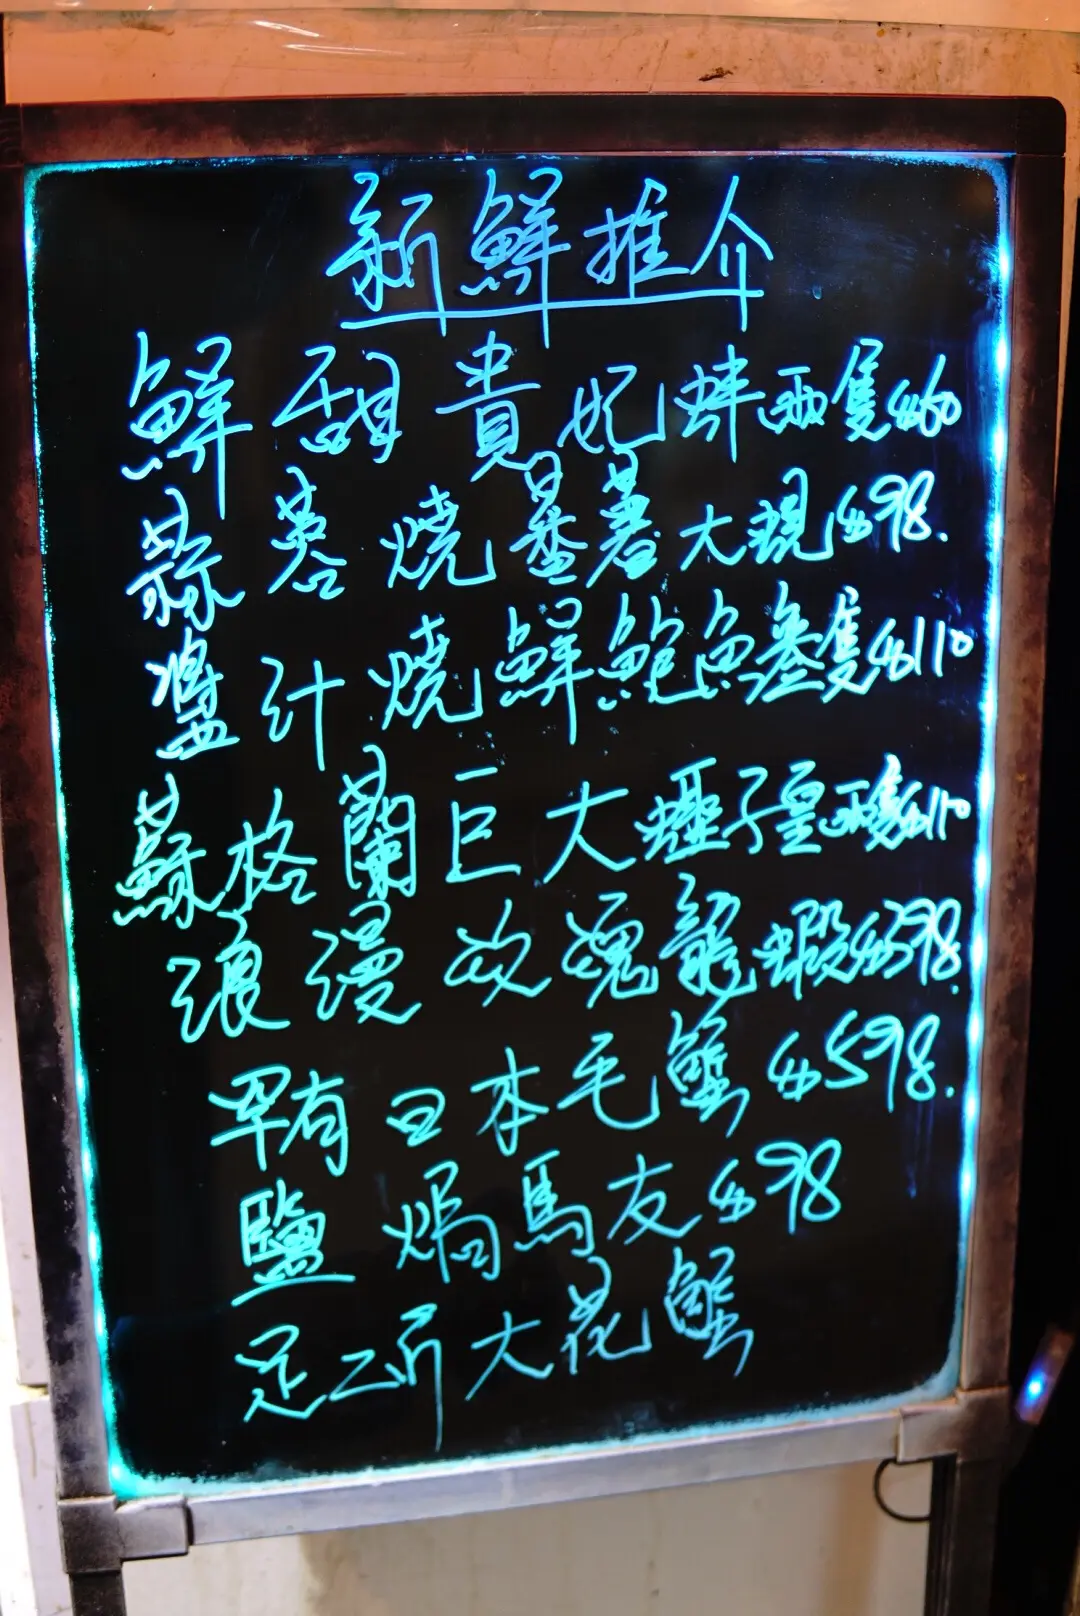 新鮮推介
鮮甜貴妃蚌兩隻$60
蒜蓉燒蕃薯大蜆$98.
醬汁燒鮮鮑魚叁隻$110
蘇格蘭巨大蟶子皇兩隻$110
浪漫玫瑰龍蝦$398.
罕有日本毛蟹$598.
鹽焗馬友$98
足二斤大花蟹